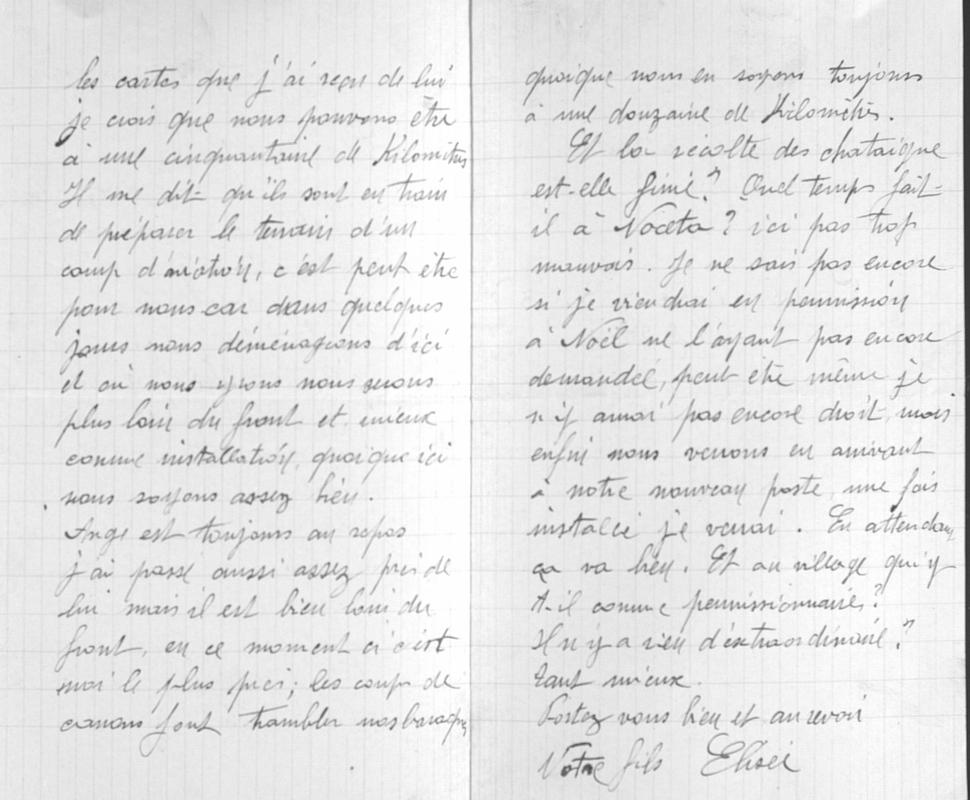 les cartes que j'ai reçu de lui
je crois que nous pouvons être
à une cinquantaine de Kilomètres
Il me dit qu'ils sont en train
de préparer le terrain d'un
camp d'aviation, c'est peut être
pour nous car dans quelques
jours nous déménageons d'ici
et où nous irons nous serons
plus loin du front et mieux
comme installation, quoique ici
nous soyons assez bien.
Ange est toujours au repos
j'ai passé aussi assez près de
lui mais il est bien loin du
front, en ce moment ci c'est
moi le plus près; les coups de
canons font trambler nos baraques
quoique nous en soyons toujours
à une douzaine de Kilomètres.
Et la récolte des chataigne
est-elle finie? Quel temps fait-
il à Noceta? ici pas trop
mauvais. Je ne sais pas encore
si je viendrai en permission
à Noël ne l'ayant pas encore
demandée, peut être même je
n'y aurai pas encore droit, mais
enfin nous verrons en arrivant
à notre nouveau poste, une fois
installé je verrai. En attendant
ça va bien. Et au village qui y
t-il comme permissionnaires?
Il n'y a rien d'extraordinaire?
tant mieux.
Portez vous bien et au revoir
Votre fils Elisée